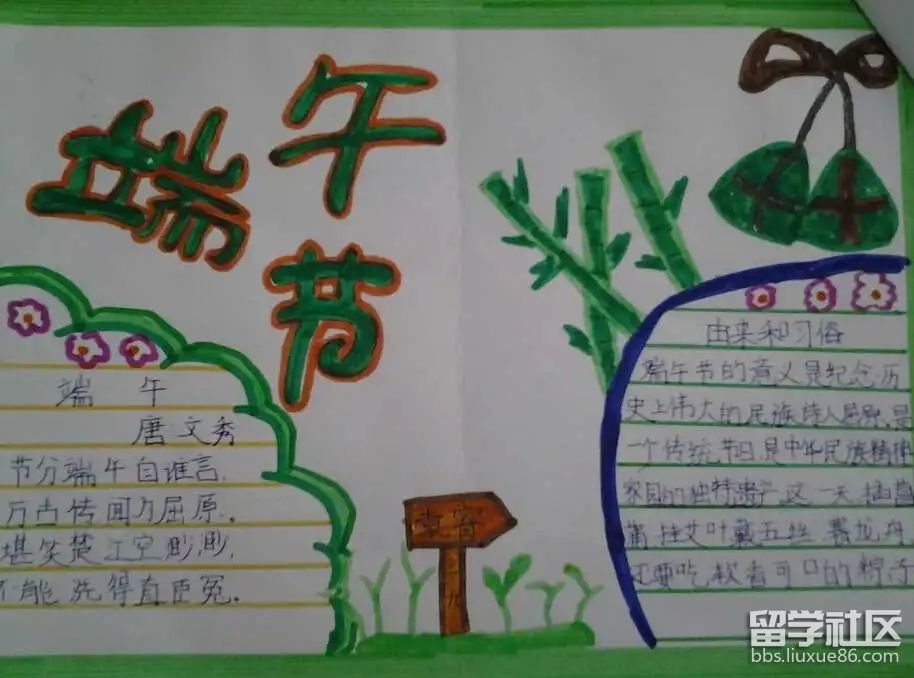 端午节
端 午
唐 文秀
节分端午自谁言,
万古传闻为屈原。
堪笑楚江空渺渺,
不能洗得直臣冤。
袁容
二
九
由来和习俗
端午节的意义是纪念历
史上伟大的民族诗人屈原,是
一个传统节日,是中华民族精神
家园的独特遗产,这一天,插菖
蒲,挂艾叶戴五丝,赛龙舟,
还要吃软香可口的粽子
留学社区
bbs.liuxue86.com